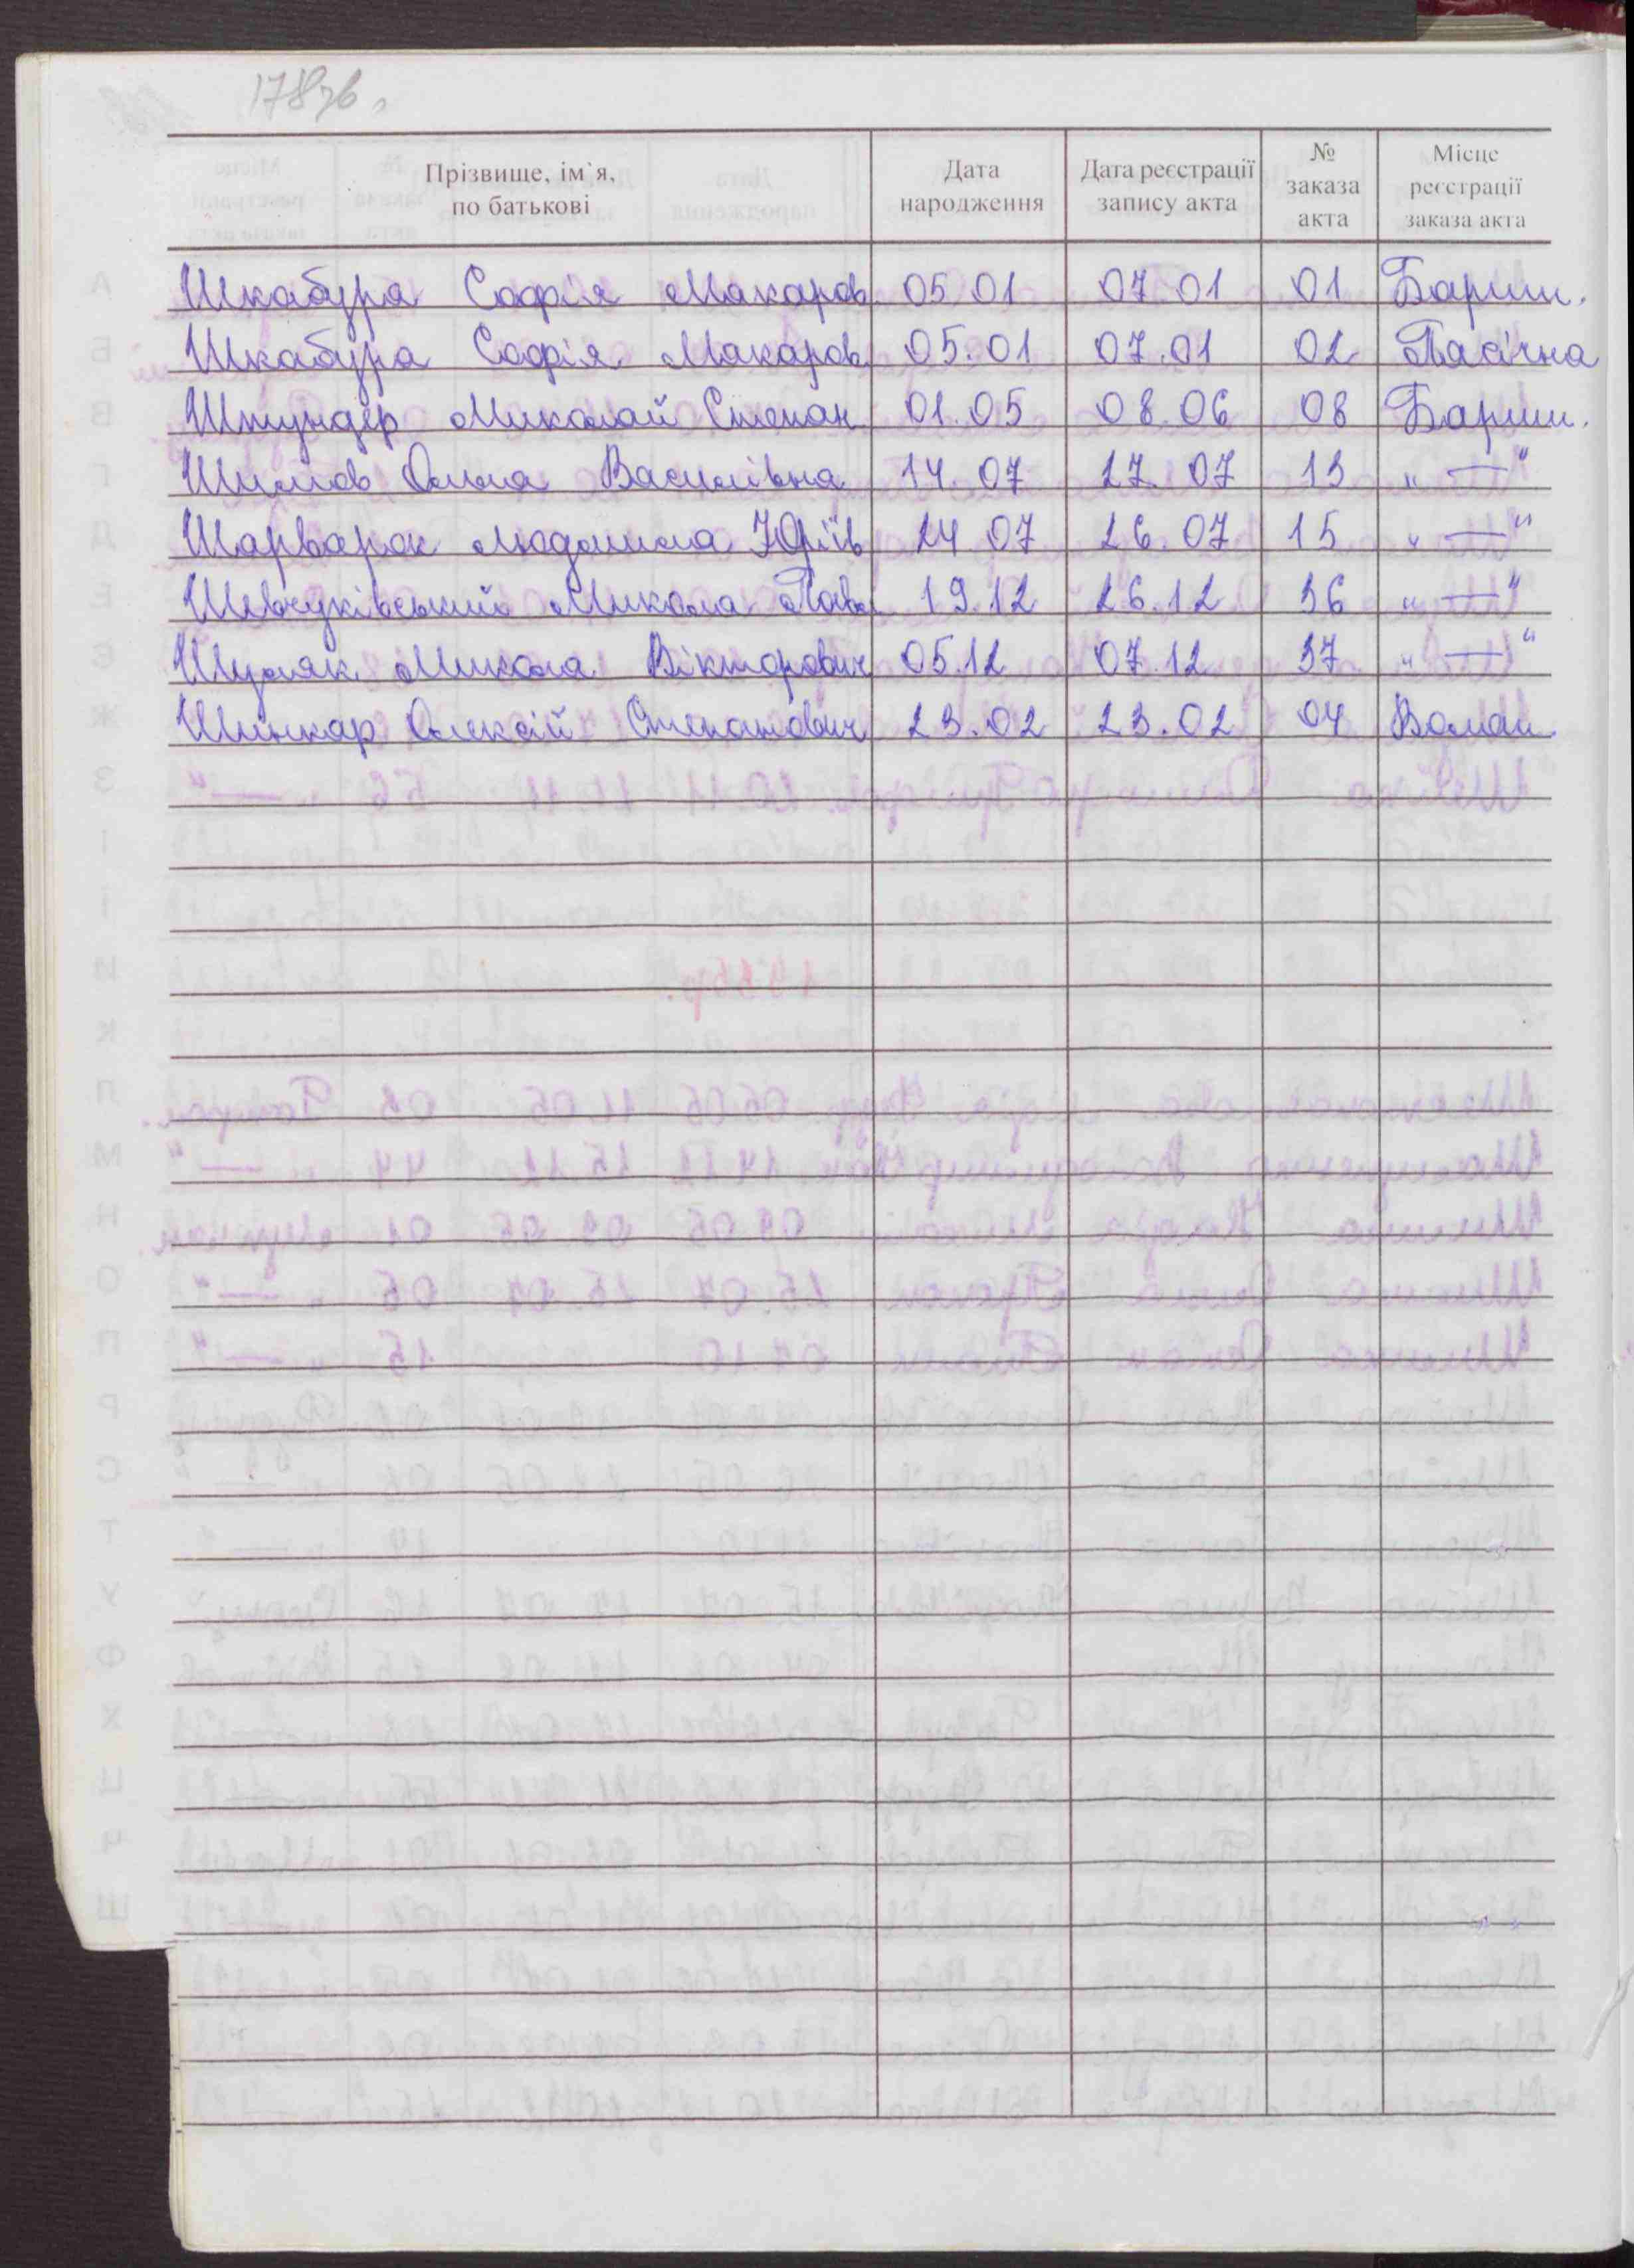 178зв.
Прізвище, ім`я, по батькові Дата народження Дата реєстрації запису акта № заказа акта Місце реєстрації заказа акта
Шкабура Софія Макаров 05.01 07.01 01 Бариш.
Шкабура Софія Макаров 05.01 07.01 02 Пасічна
Штундер Миколай Степан 01.05 08.06 08 Бариш.
Шилов Ольга Василівна 14.07 17.07 13 „ — "
Шарварок Людмила Юріїв 24.07 26.07 15 „ — "
Шевчуківський Микола Павл 19.12 26.12 36 „ — "
Шуляк Микола Вікторович 05.12 07.12 37 „ — "
Шинкар Олексій Степанович 23.02 23.02 04